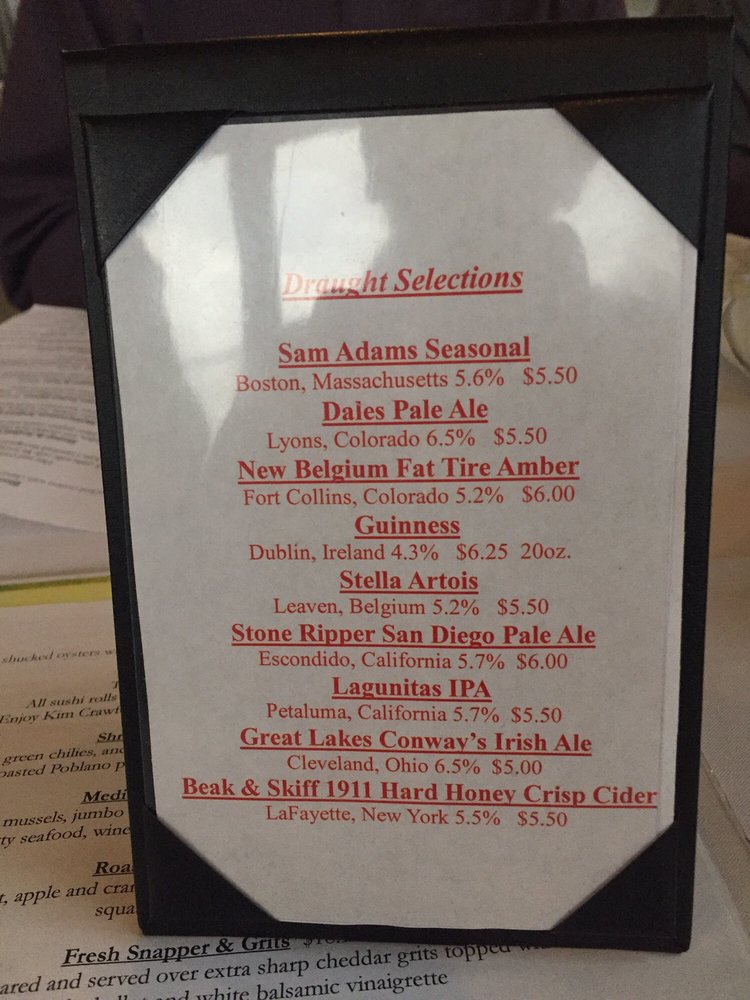 Draught Selections
Sam Adams Seasonal
Boston, Massachusetts 5.6% $5.50
Daies Pale Ale
Lyons, Colorado 6.5% $5.50
New Belgium Fat Tire Amber
Fort Collins, Colorado 5.2% $6.00
Guinness
Dublin, Ireland 4.3% $6.25 20oz.
Stella Artois
Leaven, Belgium 5.2% $5.50
Stone Ripper San Diego Pale Ale
Escondido, California 5.7% $6.00
Lagunitas IPA
Petaluma, California 5.7% $5.50
Great Lakes Conway's Irish Ale
Cleveland, Ohio 6.5% $5.00
Beak & Skiff 1911 Hard Honey Crisp Cider
LaFayette, New York 5.5% $5.50
shucked oysters
All sushi rolls
Enjoy Kim
green chilies,
Poblano
mussels, jumbo
seafood,
apple and
Fresh Snapper & Grits
and served over extra sharp cheddar grits topped
and white balsamic vinaigrette